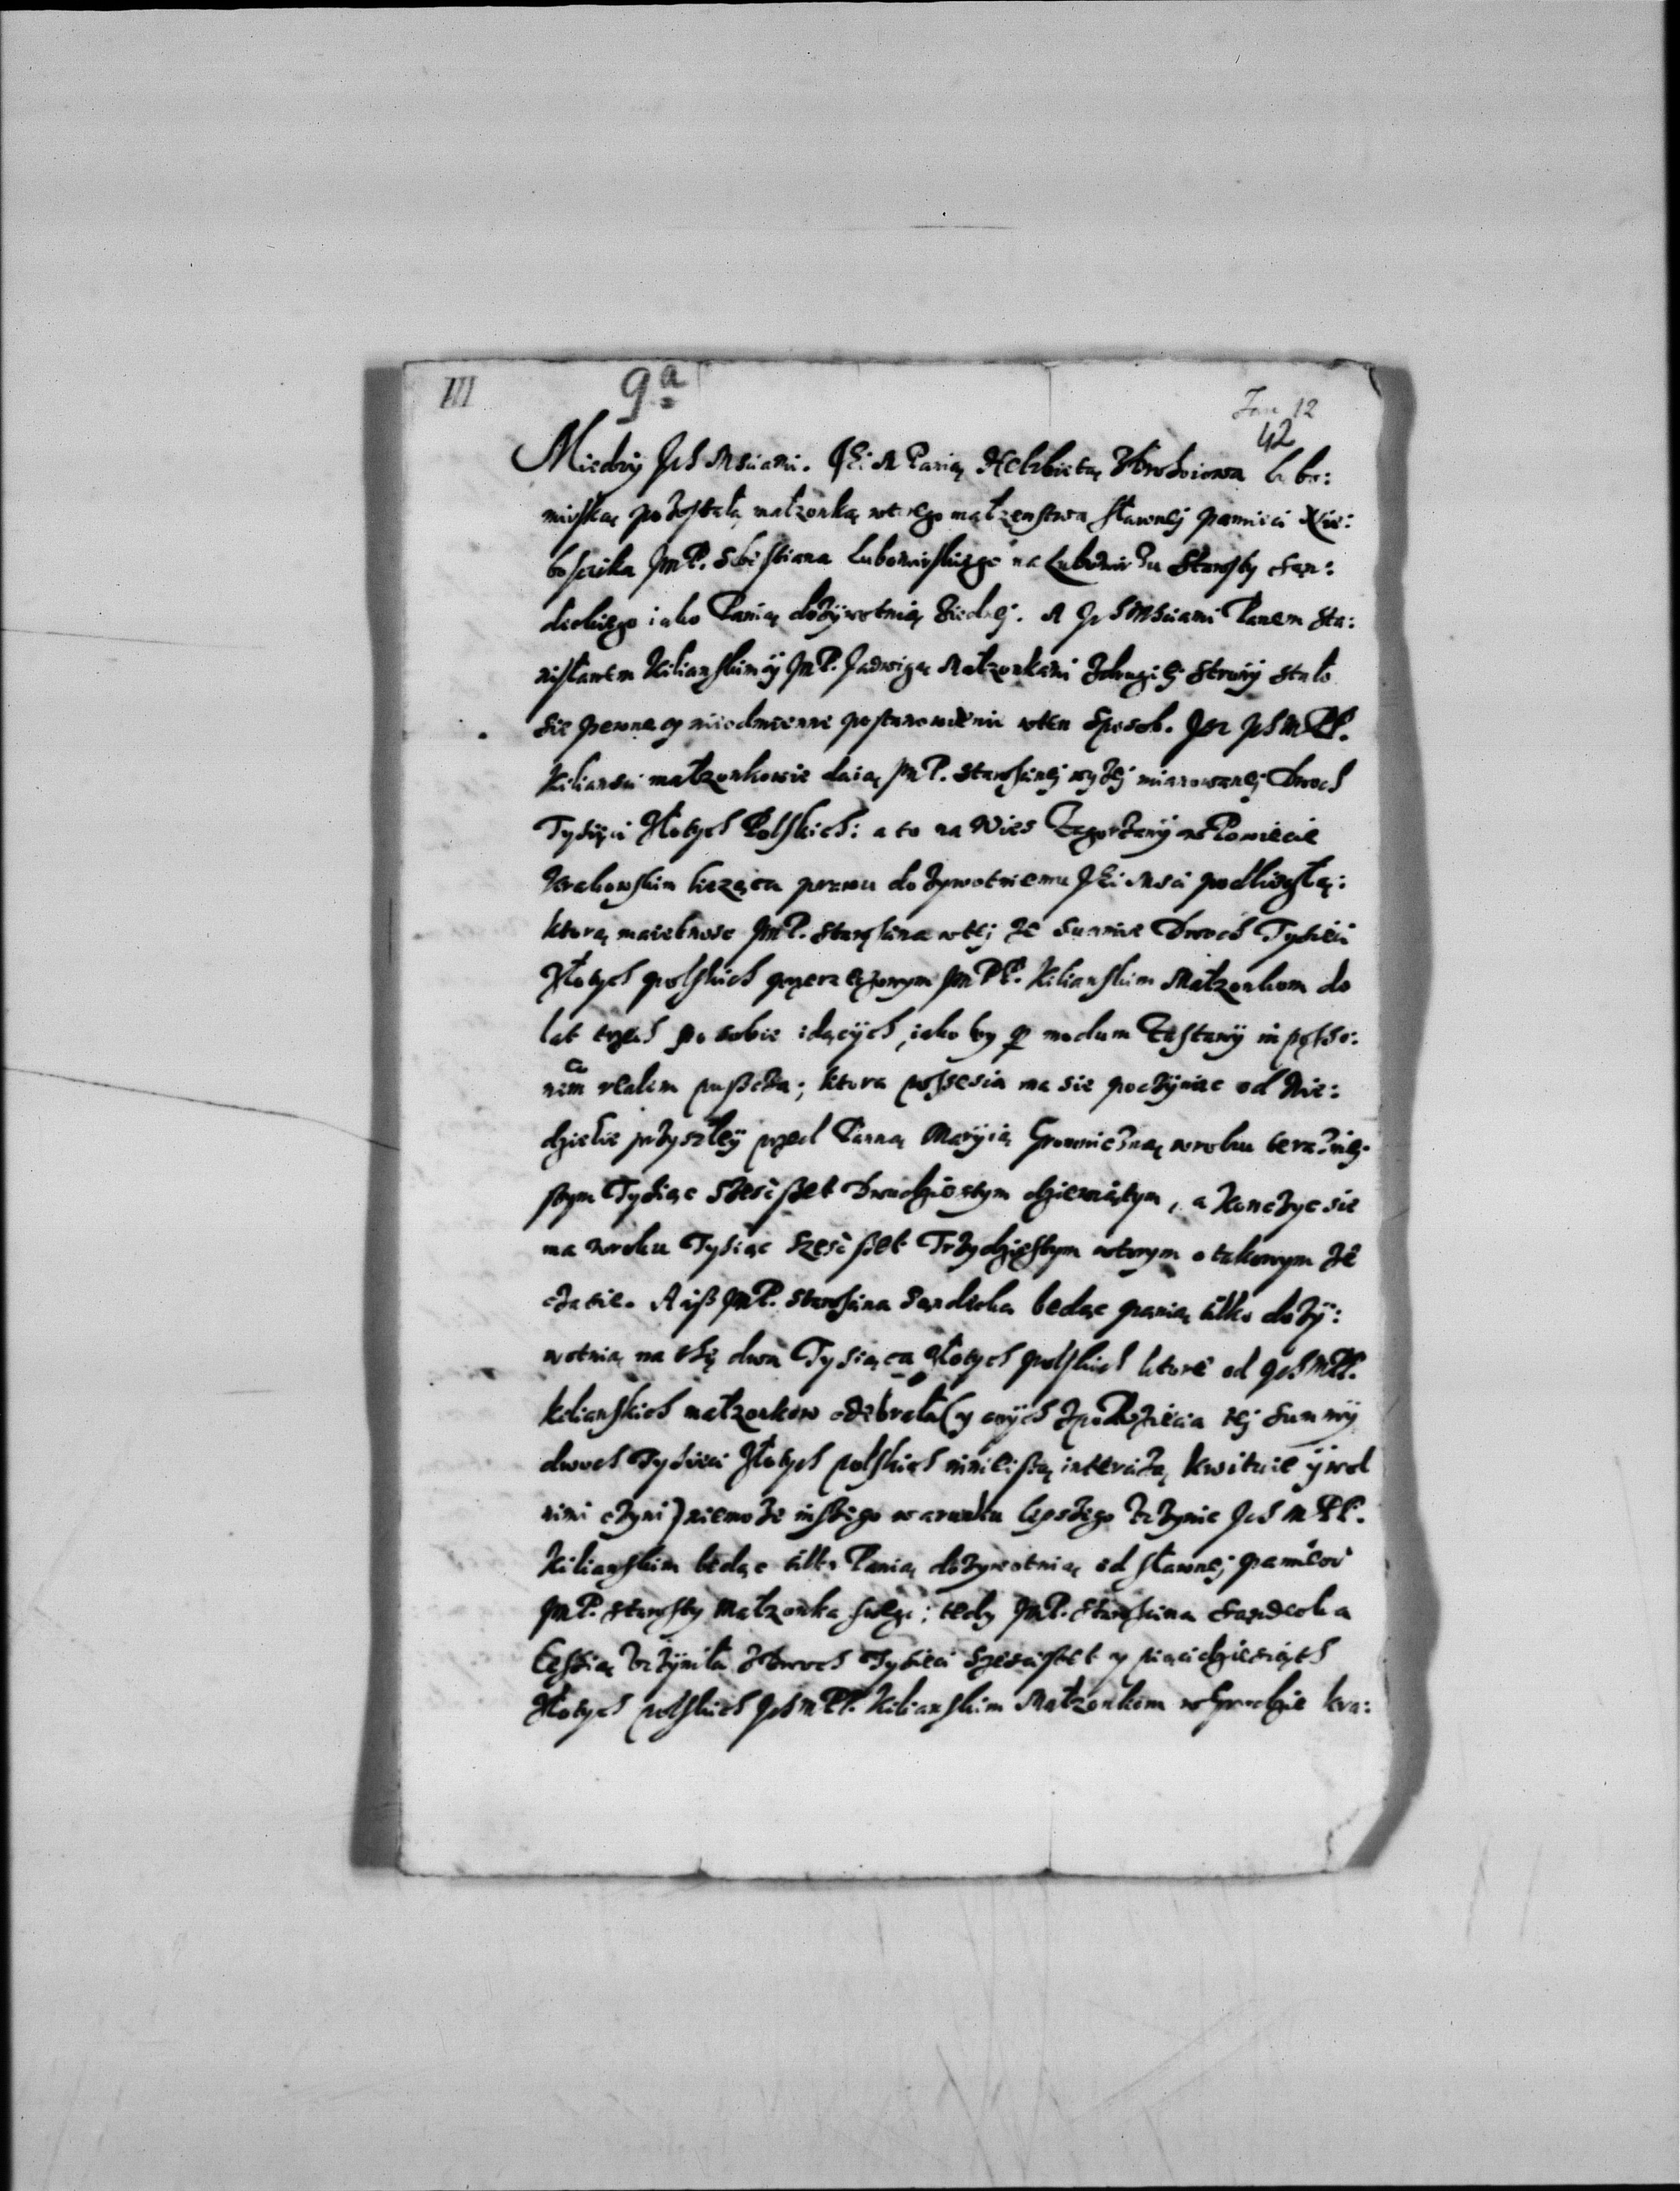 III
9a
Jan 12
42
Miedzy Jch Msciami. JEi M Panią Helzbietą Zbrożiowa Lubo:
mirską pozostałą małzonką wtorego małzęnstwa sławnej pamieci Nie:
boscika JmP. Sbestiana Lubomirskiego na Lubomirzu Starosty Sąn:
deckiego iako Panią dożywotnią ziednej. A Jch Msciami Panem Sta:
nisławem Kilianskim ÿ JmP. Jadwigą Małzonkami zdrugiej Strony Stało
sie pewne y nieodmienne postanowienie wten sposob. Jsz JchmPP.
Kilianscí małzonkowie daią JmP. Starosinej wyżej mianowanej Dwoch
Tysięci Złotych Polskich: a to na Wies Zagorzany w Powiecie
Krakowskim liezącą prawu dożywotniemu JEi Msci podległą:
ktorą maietnosc JmP. Starosina wtej że Summie Dwoch Tysieci
Złotych polskich pomienionym JmPP. Kilianskim Małzonkom do
lat trzech po sobie idącÿch, iako by p modum Zastawÿ in posse:
nem realem pusciła; ktora possesia ma sie poczÿnac od Nie:
dziele przyszłeÿ przed Panną Marÿią Gromnicżną wroku terażniej
szym Tysiąc Szesc set Dwudziestym dziewiątym, a Konczyc sie
ma wroku Tysiąc Szesc set Trzydziestym wtorym o takowym że
czasie. A iß JmP. Starosina Sądecka bedąc panią tilko dożÿ:
wotnią na dwa Tysiąca złotych polskich ktore od JchmPP.
Kilianskich małzonkow odebrała (y onych tej Summÿ
dwoch Tysieci Złotych polskich ninieiszą intercizą kwituie ÿ wol
nimi czyni) niemoże inszego warunku lepszego uczynic Jch mPP.
Kilianskim bedąc tilko Panią dożywotnią od sławnej pamieci
JmP. Starosty Małzonka swego; tedy JmP. Starosina Sądecka
Cessią uczÿniła zDwoch Tysieci Szesciset y piąćidziesiąth
Złotych polskich JchmPP. Kilianskim Małzonkom w Grodzie Kra: